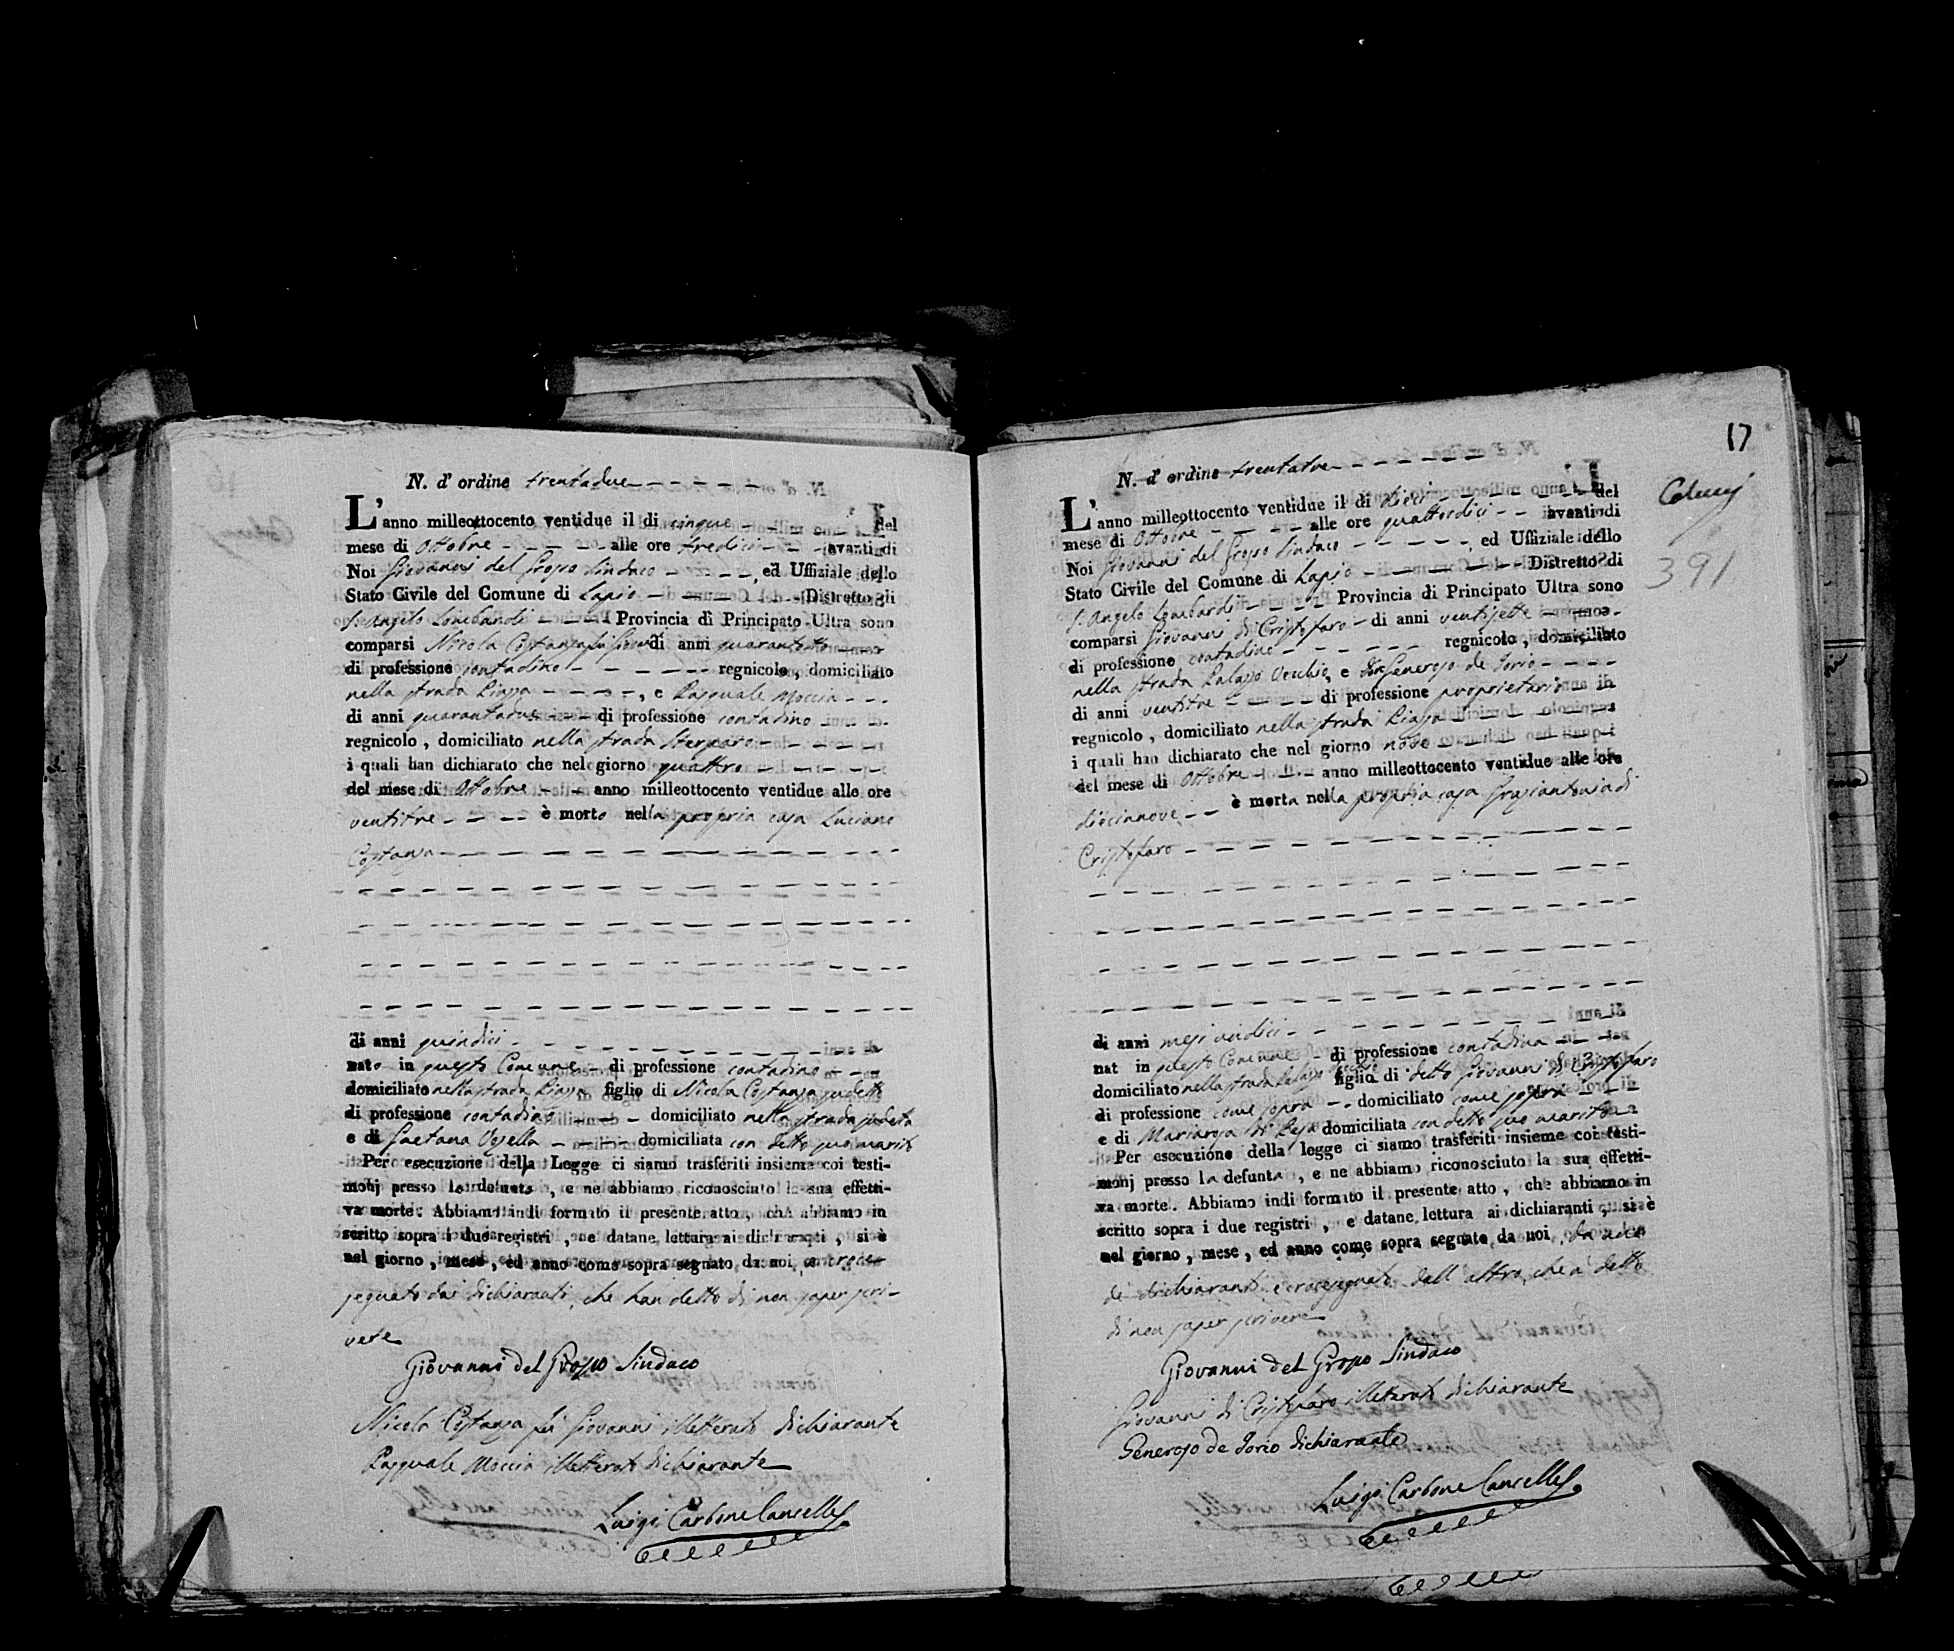 N. d' ordine trentadue
L'anno milleottocento ventidue il di cinque del
mese di Ottobre alle ore tredici avanti di
Noi Giovanni del Grosso Sindaco , ed Uffiziale dello
Stato Civile del Comune di Lapio Distretto di
S. Angelo Lombardi Provincia di Principato Ultra sono
comparsi Nicola Costanza fu Giovanni di anni quarantotto
di professione contadino regnicolo, domiciliato
nella strada Piazza , e Pasquale Moccia
di anni quarantadue di professione contadino
regnicolo, domiciliato nella strada
i quali han dichiarato che nel giorno quattro
del mese di Ottobre anno milleottocento ventidue alle ore
ventitre è morto nella propria casa Luciano
Costanza
di anni quindici
nato in questo Comune di professione contadino
domiciliato nella strada Piazza figlio di Nicola Costanza sudetto
di professione contadino domiciliato nella strada sudetta
e di Gaetana domiciliata con detto suo marito
Per esecuzione della Legge ci siamo trasferiti insieme coi testi-
monj presso lo defunto, e ne abbiamo riconosciuto la sua effetti-
va morte. Abbiamo indi formato il presente atto, che abbiamo in
scritto sopra i due registri, e datane lettura ai dichiaranti, si è
nel giorno, mese, ed anno come sopra segnato da noi, e
segnato dai dichiaranti, che han detto di non saper scri-
vere
Giovanni del Grosso Sindaco
Nicola Costanza fu Giovanni illetterato dichiarante
Pasquale Moccia illetterato dichiarante
Luigi Carbone Cancelle
17
N. d' ordine trentatre
L'anno milleottocento ventidue il di dieci del
mese di Ottobre alle ore quattordici avanti di
Noi Giovanni del Grosso Sindaco , ed Uffiziale dello
Stato Civile del Comune di Lapio Distretto di
S. Angelo Lombardi Provincia di Principato Ultra sono
comparsi Giovanni di Cristofaro di anni ventisette
di professione contadino regnicolo, domiciliato
nella strada Palazzo Vecchio, e Generoso de Iorio
di anni ventitre di professione proprietario
regnicolo, domiciliato nella strada Piazza
i quali han dichiarato che nel giorno nove
del mese di Ottobre anno milleottocento ventidue alle ore
diecinnove è morta nella propria casa Graziantonia di
Cristofaro
di anni mesi undici
nat in questo Comune di professione contadina
domiciliato nella strada Palazzo figlia di detto Giovanni di Cristofaro
di professione come sopra domiciliato come sopra
e di Mariarosa di domiciliata con detto suo marito
Per esecuzione della legge ci siamo trasferiti insieme coi testi-
monj presso la defunta, e ne abbiamo riconosciuto la sua effetti-
va morte. Abbiamo indi formato il presente atto, che abbiamo in
scritto sopra i due registri, e datane lettura ai dichiaranti, si è
nel giorno, mese, ed anno come sopra segnato da noi, da uno
de dichiaranti, e crocesegnato dall' altro, che a detto
di non saper scrivere
Giovanni del Grosso Sindaco
Giovanni di Cristofaro illetterato dichiarante
Generoso de Iorio dichiarante
Luigi Carbone Cancelle
391